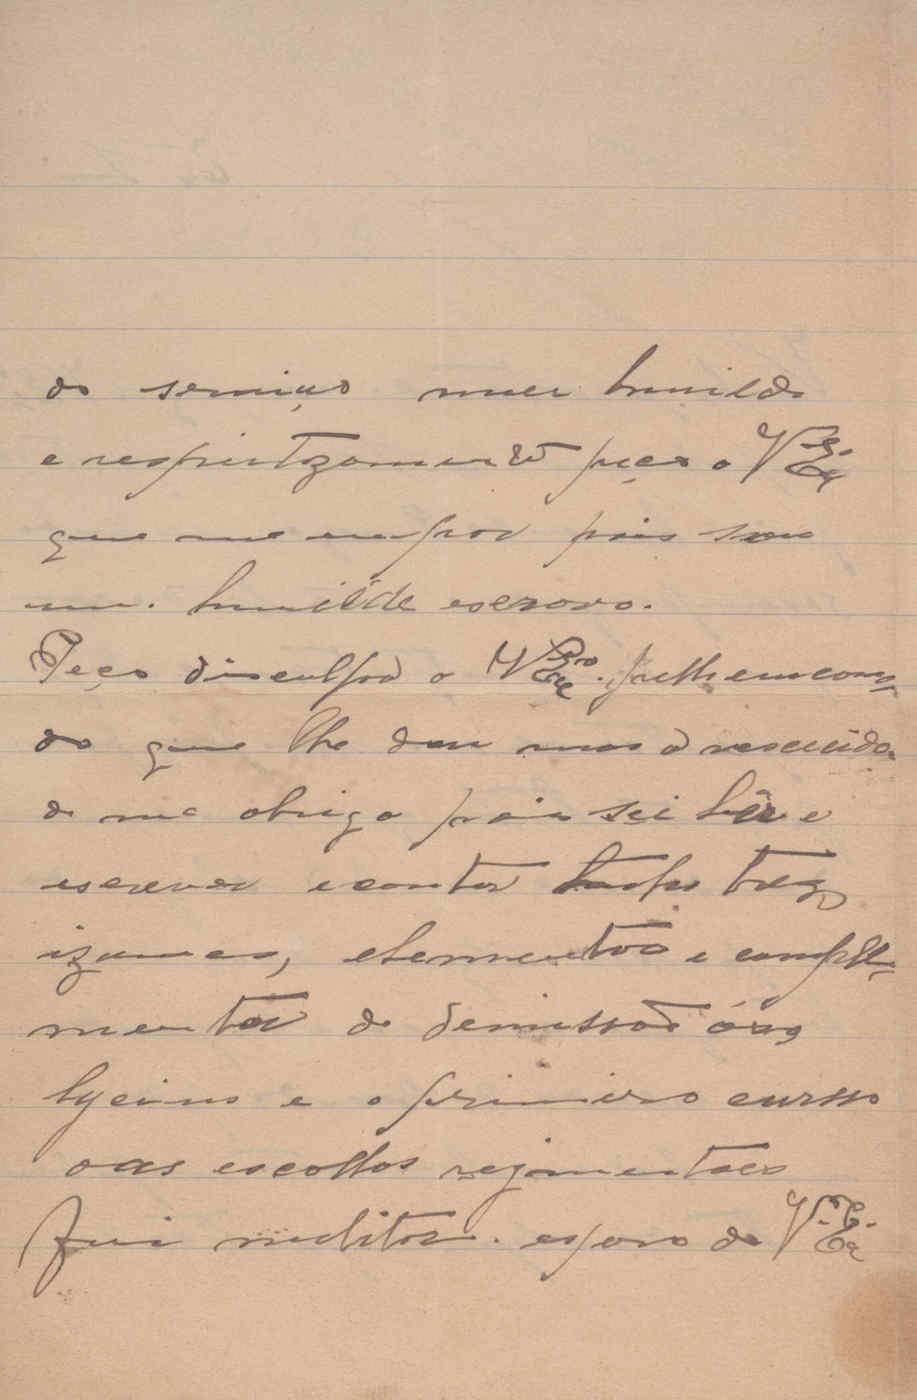 do serviço muer humilde
e respeitozamente peço a V Exª
que me empar pois sou
um. humilde escravo.
Peço disculpa a V Exª. pelhemcomo,
do que lhe dou mas a nescecida.
de me obriga pois sei ler e
escrever e contar tenho trez
izames, elementar e comple=
mentar de demissão áos
lyceius e o primeiro cursso
das escollas rejimentaes
fui melitar. espero de V. Exª